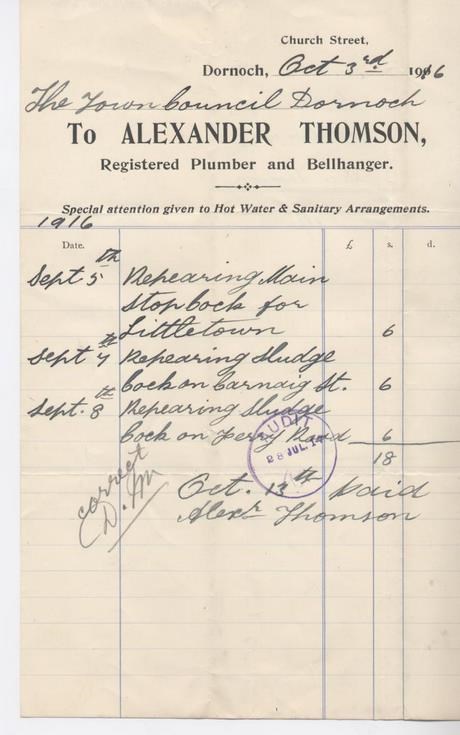 Church Street,
Dornoch, Oct 3rd 1916
The Town Council Dornoch
To ALEXANDER THOMSON,
Registered Plumber and Bellhanger.
Special attention given to Hot Water & Sanitary Arrangements.
1916
Date. £ s. d.
Sept 5th Repearing Main
Stop Cock for
Littletown 6
Sept 7th Repearing Sludge
Cock on Carnaig St. 6
Sept. 8th Repearing Sludge
Cock on Ferry Road 6
18
AUDIT
28 JUL. 
Oct. 13th Paid
Alexr Thomson
correct
D. M